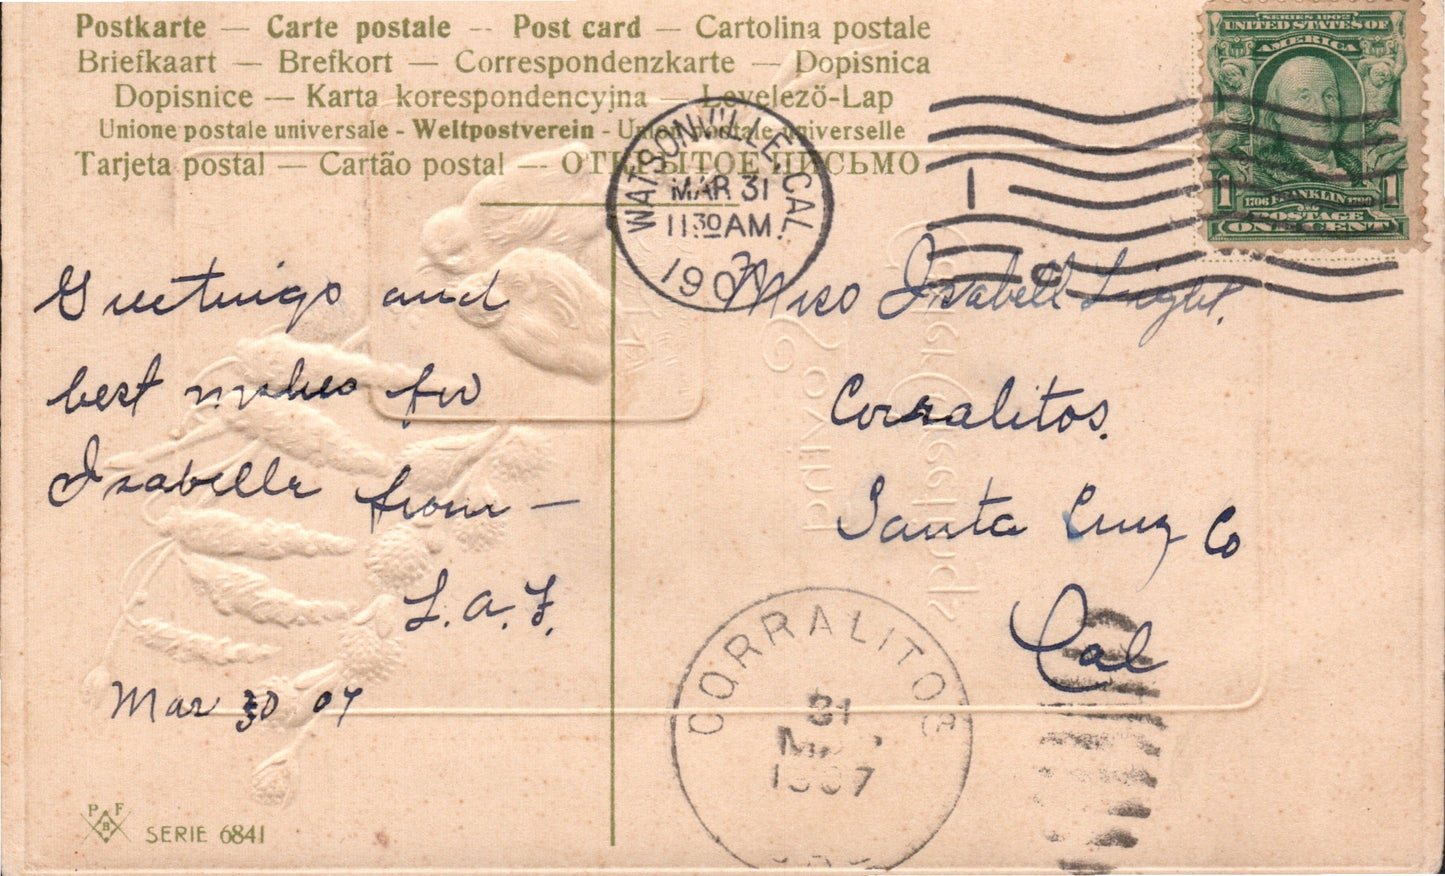 Postkarte — Carte postale -- Post card — Cartolina postale
Briefkaart — Brefkort — Correspondenzkarte — Dopisnica
Dopisnice — Karta korespondencyjna — Levelező-Lap
Unione postale universale - Weltpostverein - Union postale universelle
Tarjeta postal — Cartão postal — ОТКРЫТОЕ ПИСЬМО
SERIES 1902
UNITED STATES OF
AMERICA
1 1706 FRANKLIN 1790 1
POSTAGE
ONE CENT
WATSONVILLE, CAL.
MAR 31
11 30 AM
1907
1
Greetings and
best wishes for
Isabelle from —
L. A. F.
Mar 30 07
Miss Isabell Light.
Corralitos.
Santa Cruz Co
Cal
CORRALITOS
31
1907
P F
B
SERIE 6841